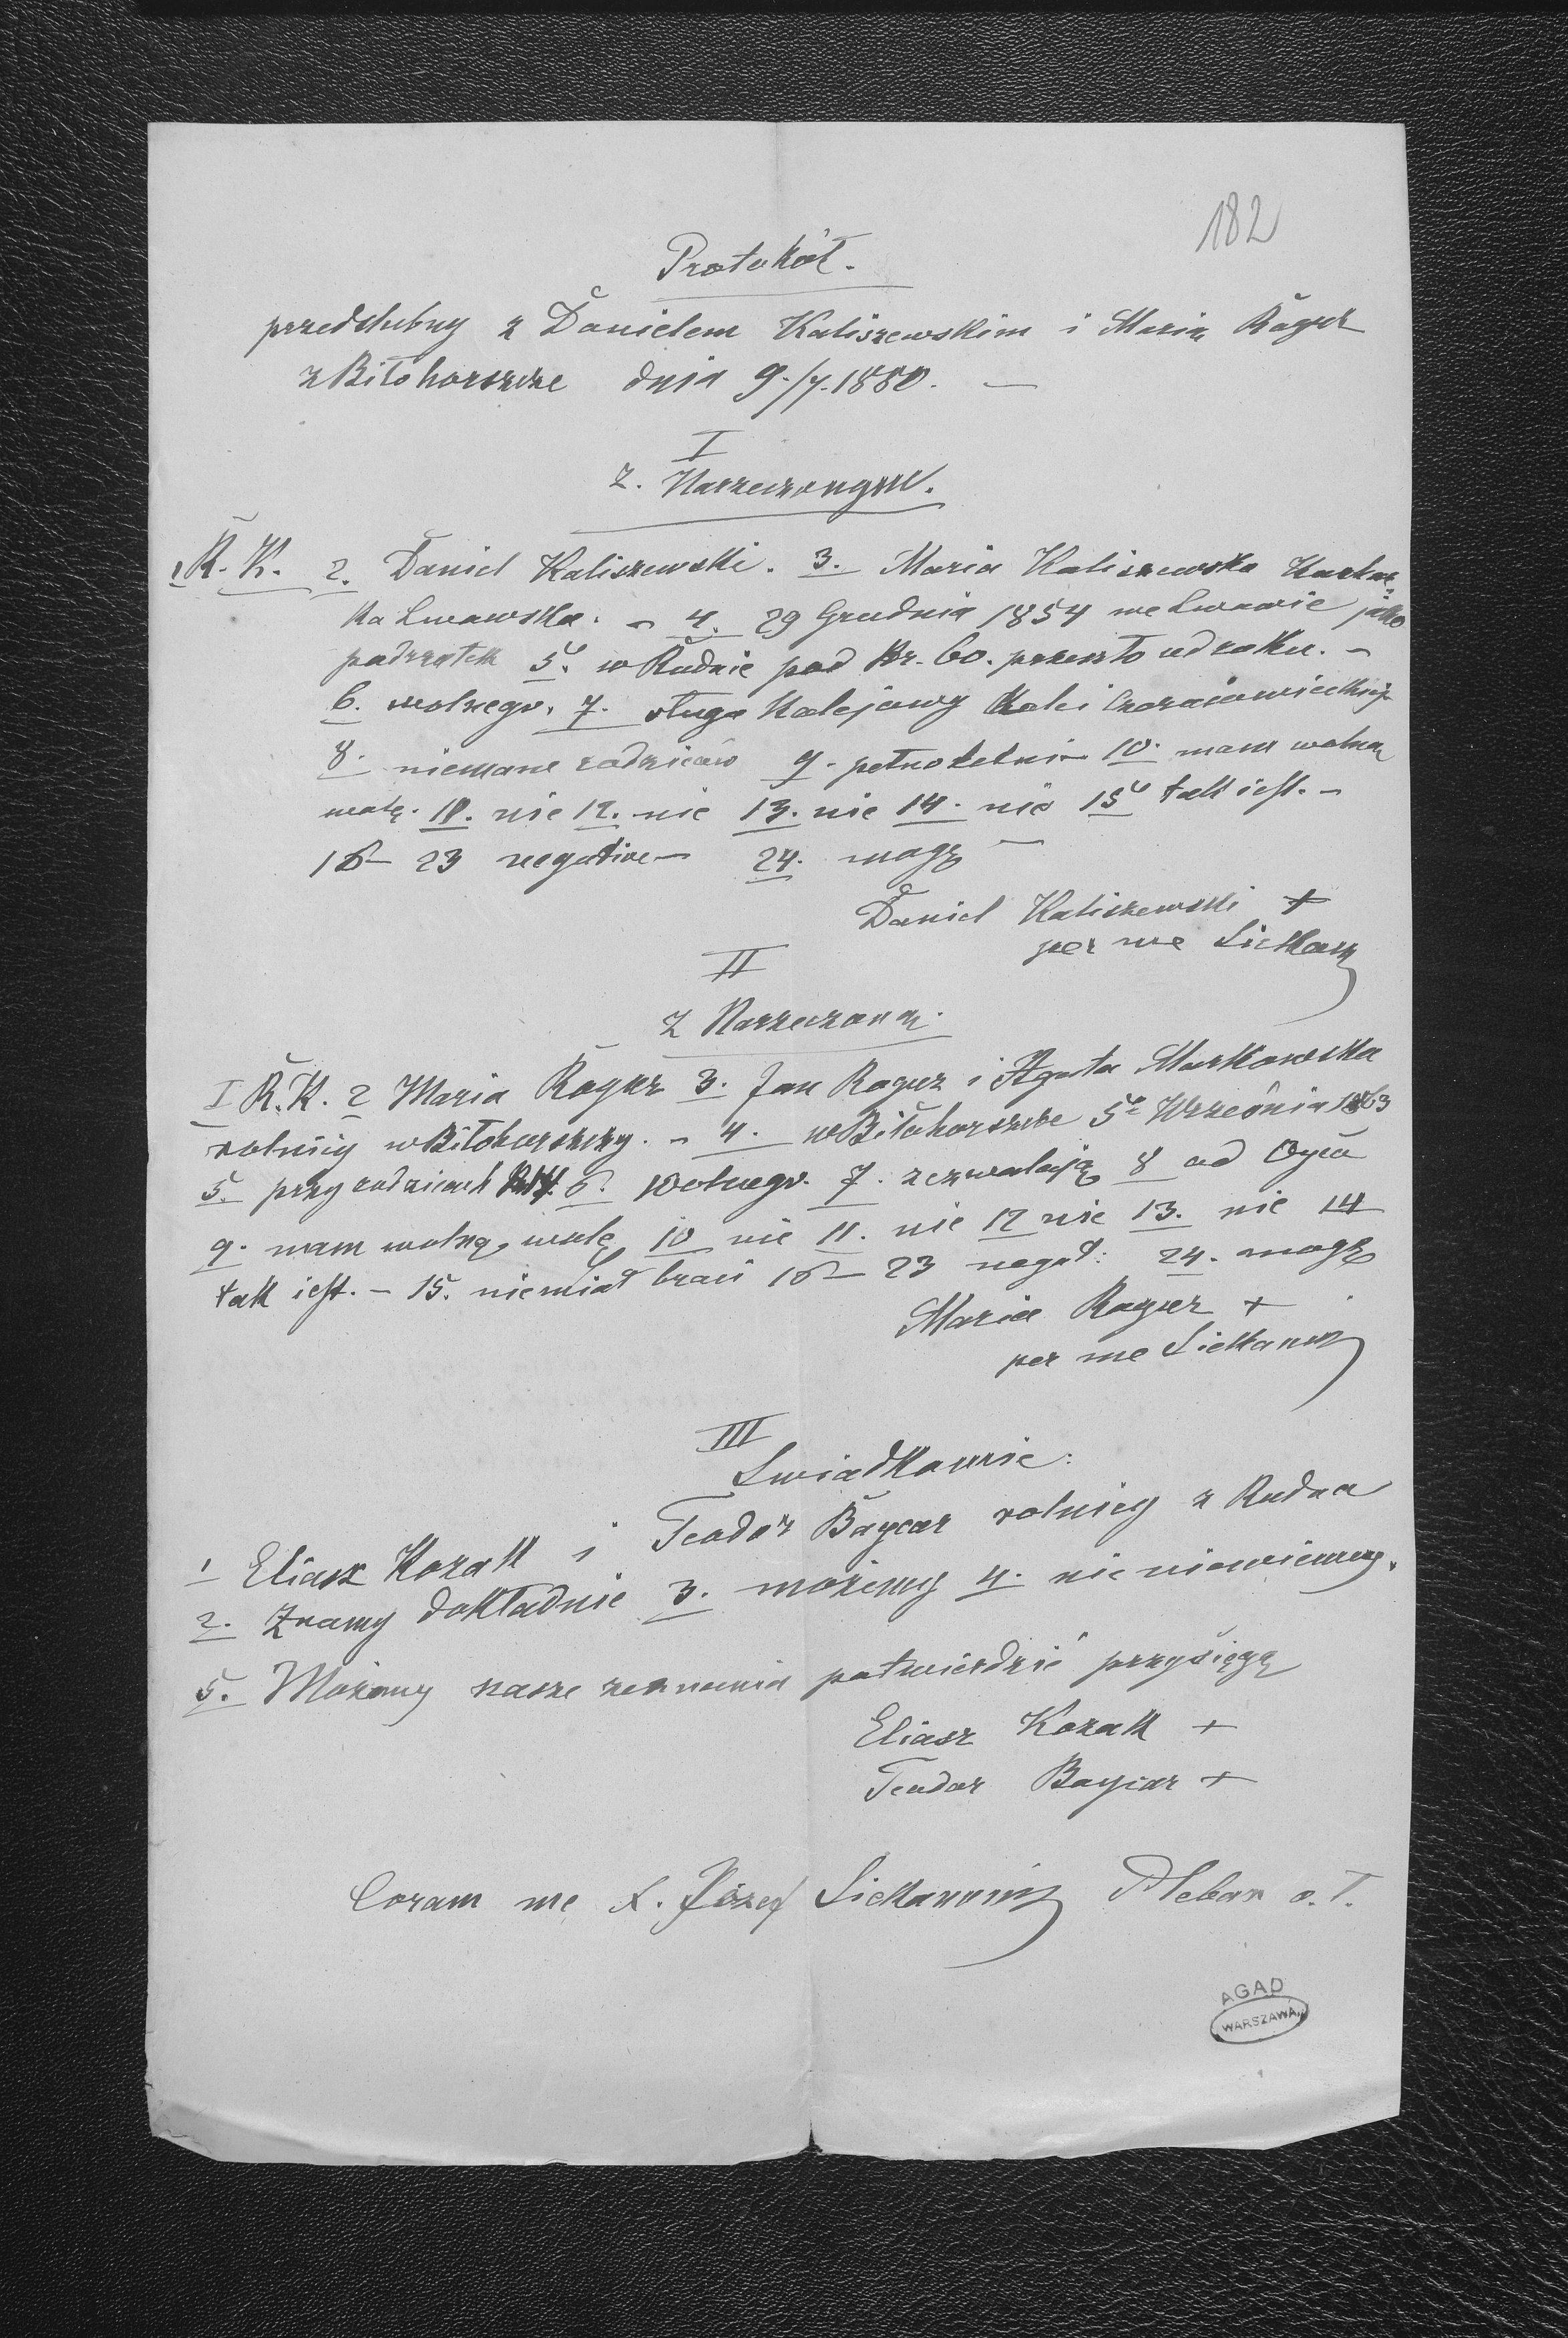 182
Protokół.
przedślubny z Danielem Kaliszewskim i Marią Rogusz
z Biłohorszcze dnia 9./7. 1880. —
I
z. Narzeczonym.
1 R. K. 2. Daniel Kaliszewski. 3. Maria Kaliszewska
ka Lwowska. – 4. 29 Grudnia 1854 we Lwowie jako
podrzutek 5. w Rudnie pod Nr. 60. przeszło od roku. –
6. wolnego. 7. sługa kolejowy Kolei Czerniowieckiej
8. niemam rodziców 9. pełnoletni – 10. mam wolną
wolę. 11. nie 12. nie 13. nie 14. nie 15 tak iest. –
16 – 23 negative – 24. mogę —
Daniel Kaliszewski +
per me
II
z Narzeczoną.
I R. K. 2 Maria Rogusz 3. Jan Rogusz i Agata Markowska
rolnicy w Biłohorszczy. – 4. w Biłohorszcze 5 Września 1863
5. przy rodzicach 6. wolnego. 7. zezwalają 8 od Oyca
9. mam wolną wolę 10 nie 11. nie 12 nie 13. nie 14
tak iest. – 15. niemiał braci 16 – 23 negat: 24. mogę
Maria Rogusz +
per me
III
Swiadkowie:
1 Eliasz Kozak i Teodor Baycar rolnicy z Rudna
2. Znamy dokładnie 3. możemy 4. nic niewiemy.
5. Możemy nasze zeznania potwierdzić przysięgą
Eliasz Kozak +
Teodor Baycar +
Coram me X. Józef Pleban o. ł.
AGAD
WARSZAWA